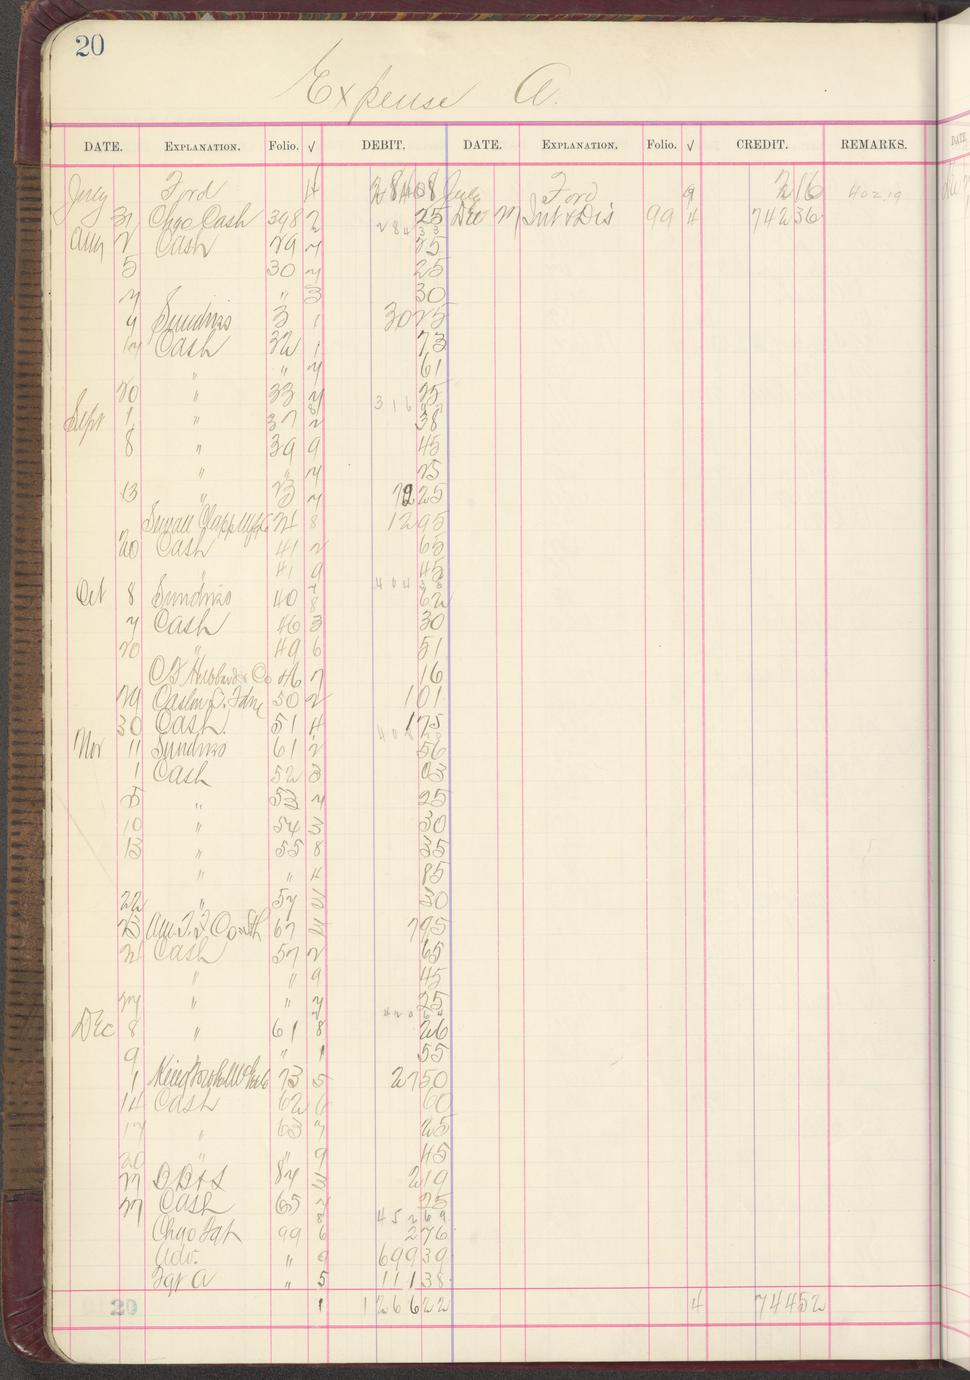 20
Expense A.
DATE. EXPLANATION. Folio. √ DEBIT. DATE. EXPLANATION. Folio. √ CREDIT. REMARKS.
July Ford 4 284 08 July Ford 9 2 16 402 19
31 Chgo Cash 398 2 25 Dec Int & Dis 99 4 742 36
284 33
Aug 2 Cash 29 7 25
5 30 7 25
7 " 3 30
9 Sundries 3 1 30 25
Cash 32 1 73
" " 7 61
20 " 33 7 25
316
Sept 1 " 37 2 38
8 " 39 9 45
" " 7 25
13 " 7 25
8 12 95
20 Cash 41 2 65
" 41 9 45
404 38
Oct 8 Sundries 40 8 62
7 Cash 46 3 30
20 " 49 6 51
Co 46 7 16
29 50 2 1 01
30 Cash. 51 4 1 75
408
Nov 11 Sundries 61 2 56
1 Cash 52 3 03
5 " 53 7 25
10 " 54 3 30
13 " 55 8 35
" " 4 85
22 " 57 3 30
Am T. F. Co 67 3 7 95
Cash 57 2 65
" " 9 45
27 " " 7 25
420 64
Dec 8 " 61 8 26
9 " 1 55
1 73 5 27 50
14 Cash 62 6 60
17 " 63 7 25
20 " " 9 45
87 3 2 19
27 Cash 65 7 25
8 452 69
Chgo 99 6 2 76
Adv. " 9 699 39
A " 5 111 38
20 1 1266 22 4 744 52